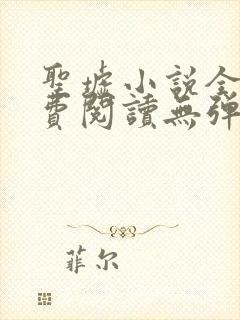 聖墟小說全
費閱讀無彈
菲尔